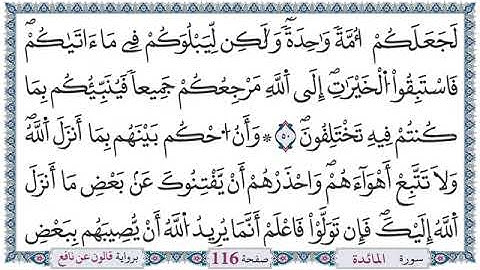 لَجَعَلَكُمْ أُمَّةٗ وَٰحِدَةٗ وَلَٰكِن لِّيَبْلُوَكُمْ فِي مَا ءَاتَيٰكُمْ
فَاسْتَبِقُواْ الْخَيْرَٰتِ إِلَى اَ۬للَّهِ مَرْجِعُكُمْ جَمِيعاٗ فَيُنَبِّئُكُم بِمَا
كُنتُمْ فِيهِ تَخْتَلِفُونَ ٥٠ * وَأَنُ اُ۟حْكُم بَيْنَهُم بِمَا أَنزَلَ اَ۬للَّهُ
وَلَا تَتَّبِعْ أَهْوَآءَهُمْ وَاحْذَرْهُمْ أَنْ يَّفْتِنُوكَ عَنۢ بَعْضِ مَا أَنزَلَ
اَ۬للَّهُ إِلَيْكَ فَإِن تَوَلَّوْاْ فَاعْلَمْ أَنَّمَا يُرِيدُ اُ۬للَّهُ أَنْ يُّصِيبَهُم بِبَعْضِ
سورة المائدة صفحة 116 برواية قالون عن نافع